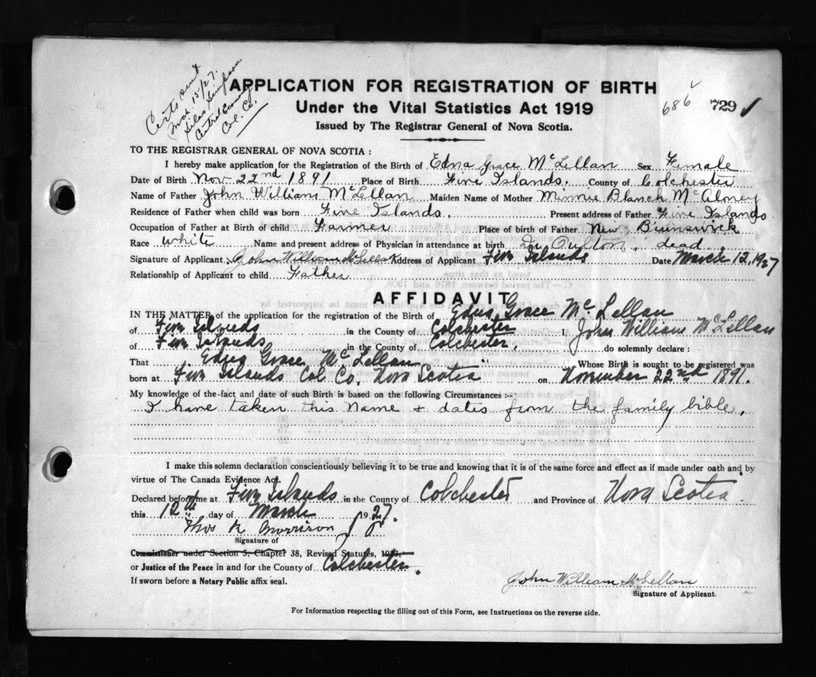 Certs sent
Mch 15/27.
Silas Simpson
Central Economy
Col. Co.
APPLICATION FOR REGISTRATION OF BIRTH
Under the Vital Statistics Act 1919
686 729
Issued by The Registrar General of Nova Scotia.
TO THE REGISTRAR GENERAL OF NOVA SCOTIA:
I hereby make application for the Registration of the Birth of Edna Grace McLellan Sex Female
Date of Birth Nov 22nd 1891 Place of Birth Five Islands. County of Colchester
Name of Father John William McLellan Maiden Name of Mother Minnie Blanch McAloney
Residence of Father when child was born Five Islands. Present address of Father Five Islands
Occupation of Father at Birth of child Farmer Place of birth of Father New Brunswick
Race White Name and present address of Physician in attendance at birth Dr Oulton. dead.
Signature of Applicant John William McLellan Address of Applicant Five Islands Date March 12, 1927
Relationship of Applicant to child Father
AFFIDAVIT
IN THE MATTER of the application for the registration of the Birth of Edna Grace McLellan
of Five Islands in the County of Colchester I, John William McLellan
of Five Islands in the County of Colchester. do solemnly declare:
That Edna Grace McLellan Whose Birth is sought to be registered was
born at Five Islands Col Co. Nova Scotia on November 22nd 1891.
My knowledge of the fact and date of such Birth is based on the following Circumstances:-
I have taken this Name & dates from the family bible.
I make this solemn declaration conscientiously believing it to be true and knowing that it is of the same force and effect as if made under oath and by
virtue of The Canada Evidence Act.
Declared before me at Five Islands in the County of Colchester and Province of Nova Scotia.
this 12th day of March 1927.
Thos R Morrison J P
Signature of
Commissioner under Section 5, Chapter 38, Revised Statutes,
or Justice of the Peace in and for the County of Colchester.
If sworn before a Notary Public affix seal.
John William McLellan
Signature of Applicant.
For Information respecting the filling out of this Form, see Instructions on the reverse side.